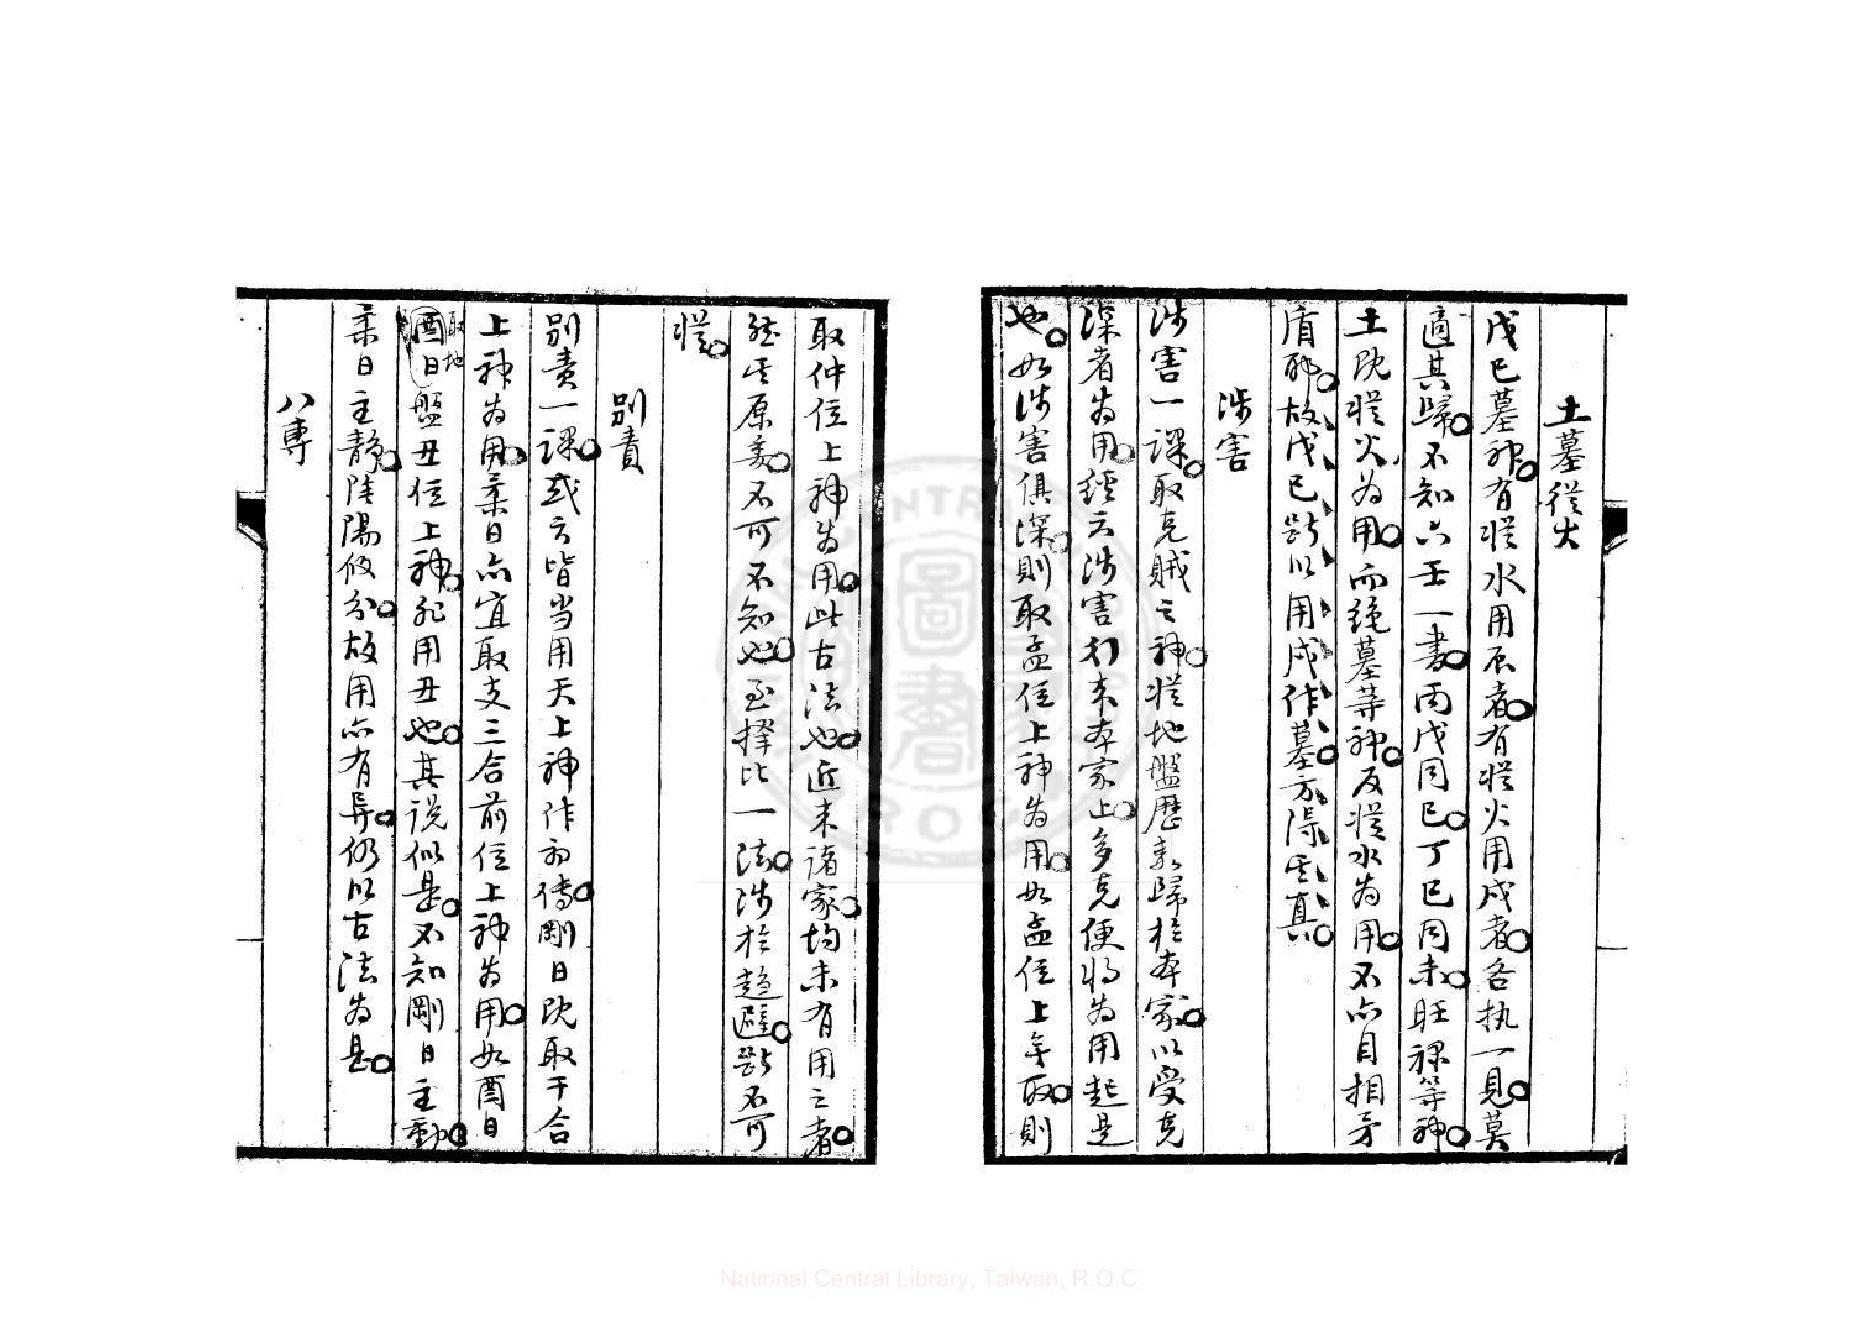 土墓從火
戊已墓神有從水用辰者有從火用戌者各执一見莫
適其歸不知六壬一書丙戊同已丁已同未旺祿等神
土既從火为用而絶墓等神反從水为用不亦自相矛
盾耶故戊已断以用戌作墓方得其真
涉害
涉害一課取克賊之神從地盤歷数歸於本家以受克
深者为用經云涉害行来本家上多克便將为用起是
也如涉害俱深則取孟位上神为用如孟位上無取則
取仲位上神为用此古法也近来諸家均未有用之者
然其原委不可不知也至擇比一法涉於趋避断不可
從
別責
別責一課或云皆当用天上神作初傳剛日既取干合
上神为用柔日亦宜取支三合前位上神为用如酉日
取地盤丑位上神非用丑也其説似是不知剛日主動
柔日主静陰陽攸分故用亦有異仍以古法为是
八專
National Central Library, Taiwan, R.O.C.